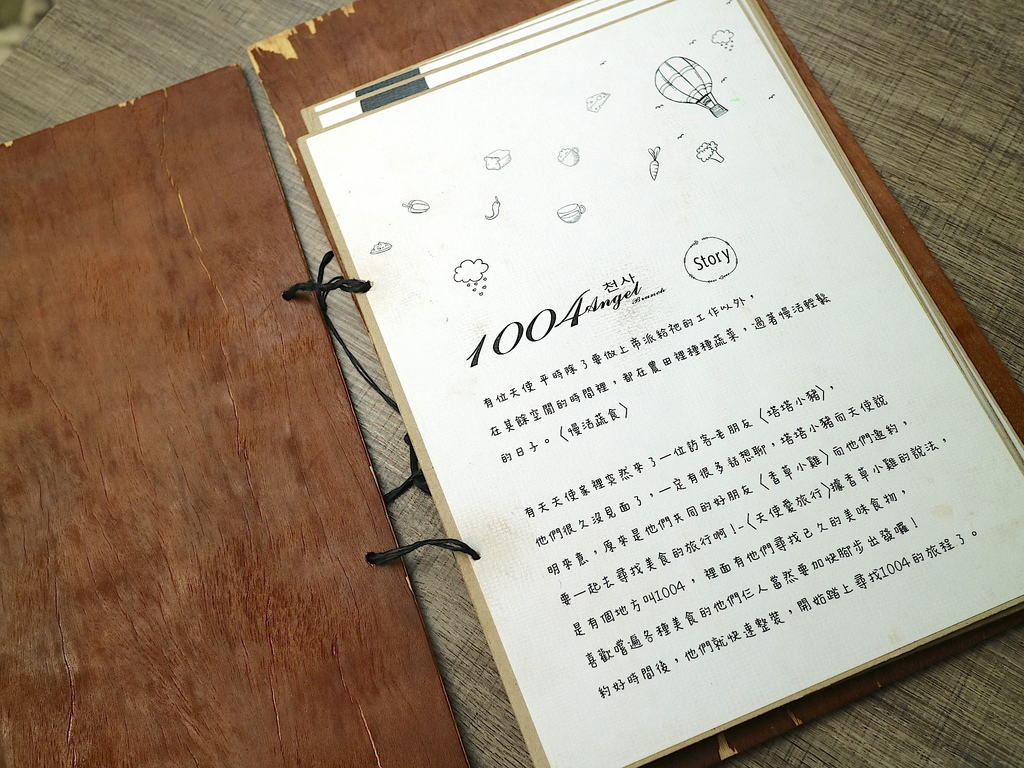 Story
천사
1004 Angel Brunch
有位天使平時除了要做上帝派給祂的工作以外，
在其餘空閒的時間裡，都在農田裡種種蔬菜，過著慢活輕鬆
的日子。〈慢活蔬食〉
有天天使家裡突然來了一位訪客-老朋友〈塔塔小豬〉，
他們很久沒見面了，一定有很多話想聊，塔塔小豬而天使說
明來意，原來是他們共同的好朋友〈香草小雞〉而他們邀約，
要一起去尋找美食的旅行啊！-〈天使愛旅行〉據香草小雞的說法，
是有個地方叫1004，裡面有他們尋找已久的美味食物，
喜歡嚐遍各種美食的他們仨人當然要加快腳步出發囉！
約好時間後，他們就快速整裝，開始踏上尋找1004的旅程了。